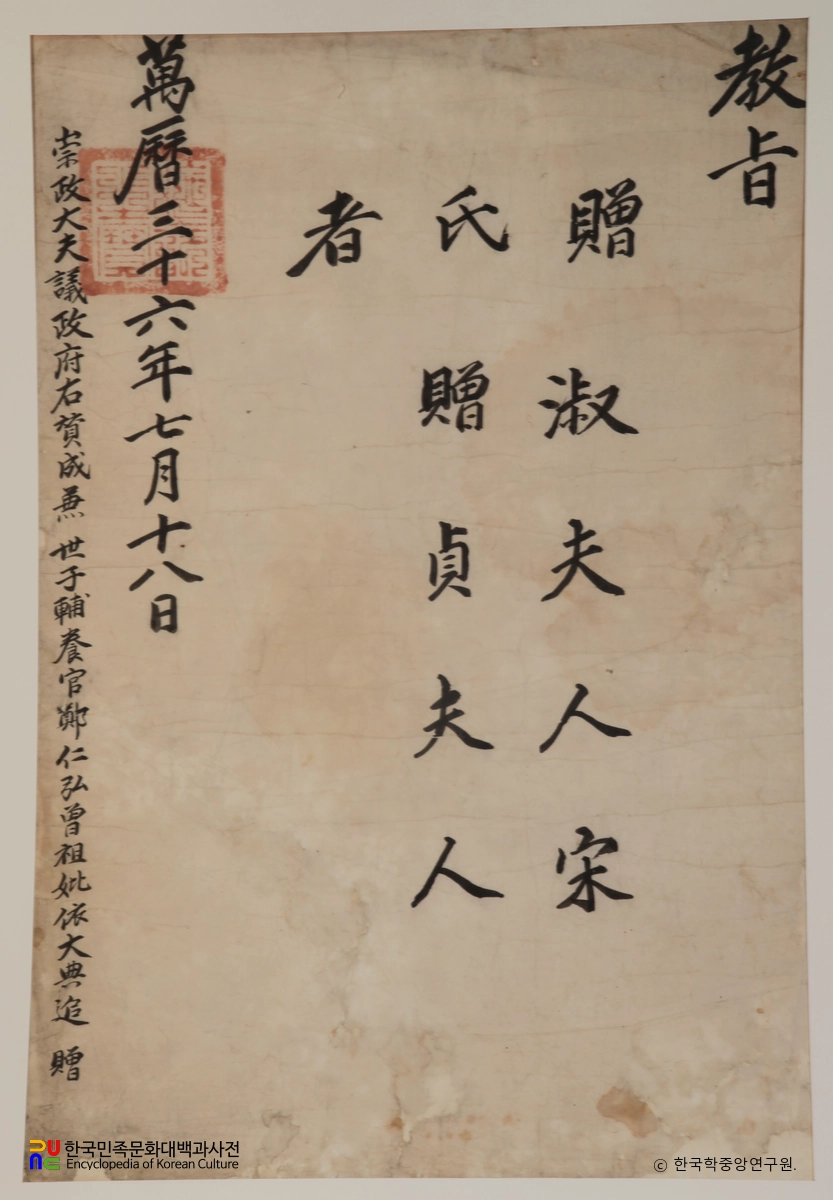 敎旨
贈淑夫人宋
氏贈貞夫人
者
萬曆三十六年七月十八日
崇政大夫議政府右贊成兼 世子輔養官鄭仁弘曾祖妣依大典追 贈
한국민족문화대백과사전
Encyclopedia of Korean Culture
ⓒ 한국학중앙연구원.